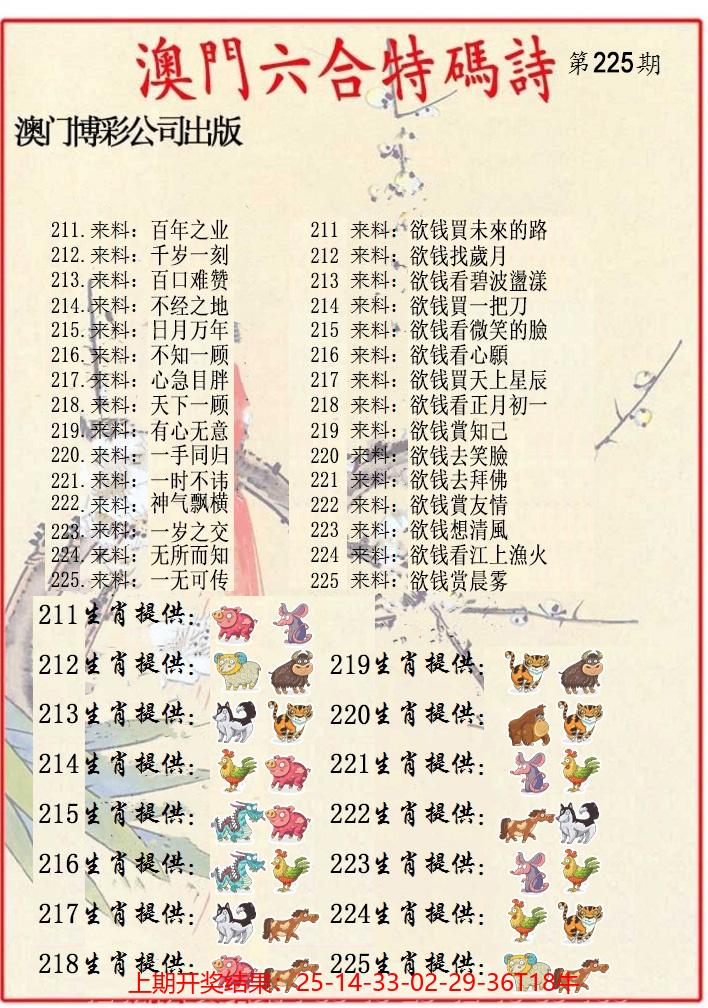 澳門六合特碼詩 第225期
澳门博彩公司出版
211.来料：百年之业 211 来料：欲钱買未來的路
212.来料：千岁一刻 212 来料：欲钱找歲月
213.来料：百口难赞 213 来料：欲钱看碧波盪漾
214.来料：不经之地 214 来料：欲钱買一把刀
215.来料：日月万年 215 来料：欲钱看微笑的臉
216.来料：不知一顾 216 来料：欲钱看心願
217.来料：心急目胖 217 来料：欲钱買天上星辰
218.来料：天下一顾 218 来料：欲钱看正月初一
219.来料：有心无意 219 来料：欲钱賞知己
220.来料：一手同归 220 来料：欲钱去笑臉
221.来料：一时不讳 221 来料：欲钱去拜佛
222.来料：神气飘横 222 来料：欲钱賞友情
223.来料：一岁之交 223 来料：欲钱想清風
224.来料：无所而知 224 来料：欲钱看江上漁火
225.来料：一无可传 225 来料：欲钱赏晨雾
211生肖提供：
212生肖提供： 219生肖提供：
213生肖提供： 220生肖提供：
214生肖提供： 221生肖提供：
215生肖提供： 222生肖提供：
216生肖提供： 223生肖提供：
217生肖提供： 224生肖提供：
218生肖提供： 225生肖提供：
上期开奖结果：25-14-33-02-29-36T18牛